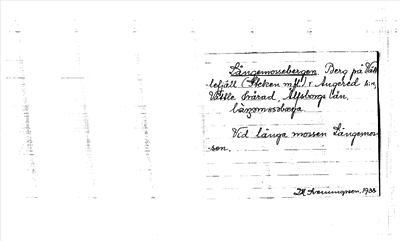 Långemossebergen. Berg på Vätt
lefjäll (Steken m.fl.) i Angered s:n,
Vättle härad, Älfsborgs län.
långomossbærja
Vid långa mossen Långemos-
sen.
1933